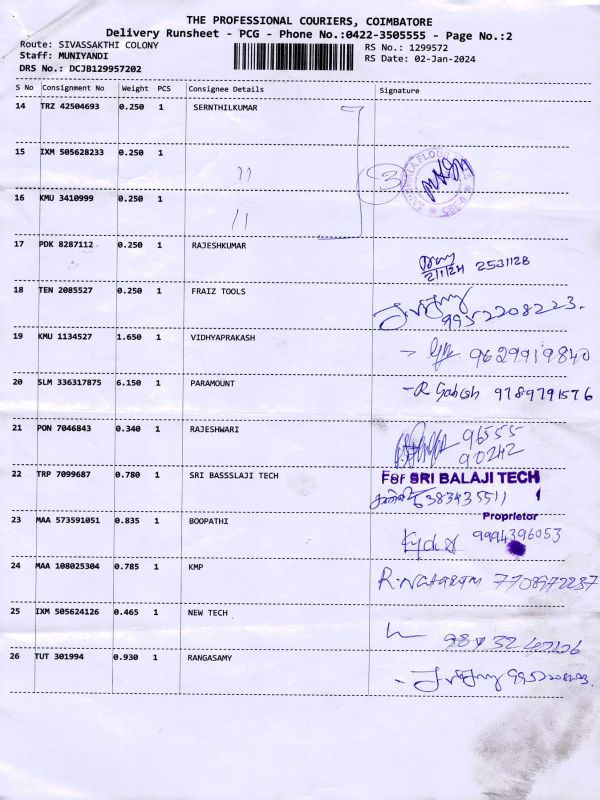 THE PROFESSIONAL COURIERS, COIMBATORE
Delivery Runsheet - PCG - Phone No.:0422-3505555 - Page No.:2
Route: SIVASSAKTHI COLONY
Staff: MUNIYANDI
DRS No.: DCJB129957202
RS No.: 1299572
RS Date: 02-Jan-2024
S No Consignment No Weight PCS Consignee Details Signature
14 TRZ 42504693 0.250 1 SERNTHILKUMAR
15 IXM 505628233 0.250 1 11 3
16 KMU 3410999 0.250 1 11
17 PDK 8287112 0.250 1 RAJESHKUMAR
2/1/24 2531128
18 TEN 2085527 0.250 1 FRAIZ TOOLS
9952208223.
19 KMU 1134527 1.650 1 VIDHYAPRAKASH 9629919840
20 SLM 336317875 6.150 1 PARAMOUNT 9789791576
21 PON 7046843 0.340 1 RAJESHWARI 96555
90242
22 TRP 7099687 0.780 1 SRI BASSSLAJI TECH For SRI BALAJI TECH
6383435511
Proprietor
23 MAA 573591051 0.835 1 BOOPATHI 9994396053
24 MAA 108025304 0.785 1 KMP 7708972237
25 IXM 505624126 0.465 1 NEW TECH
26 TUT 301994 0.930 1 RANGASAMY